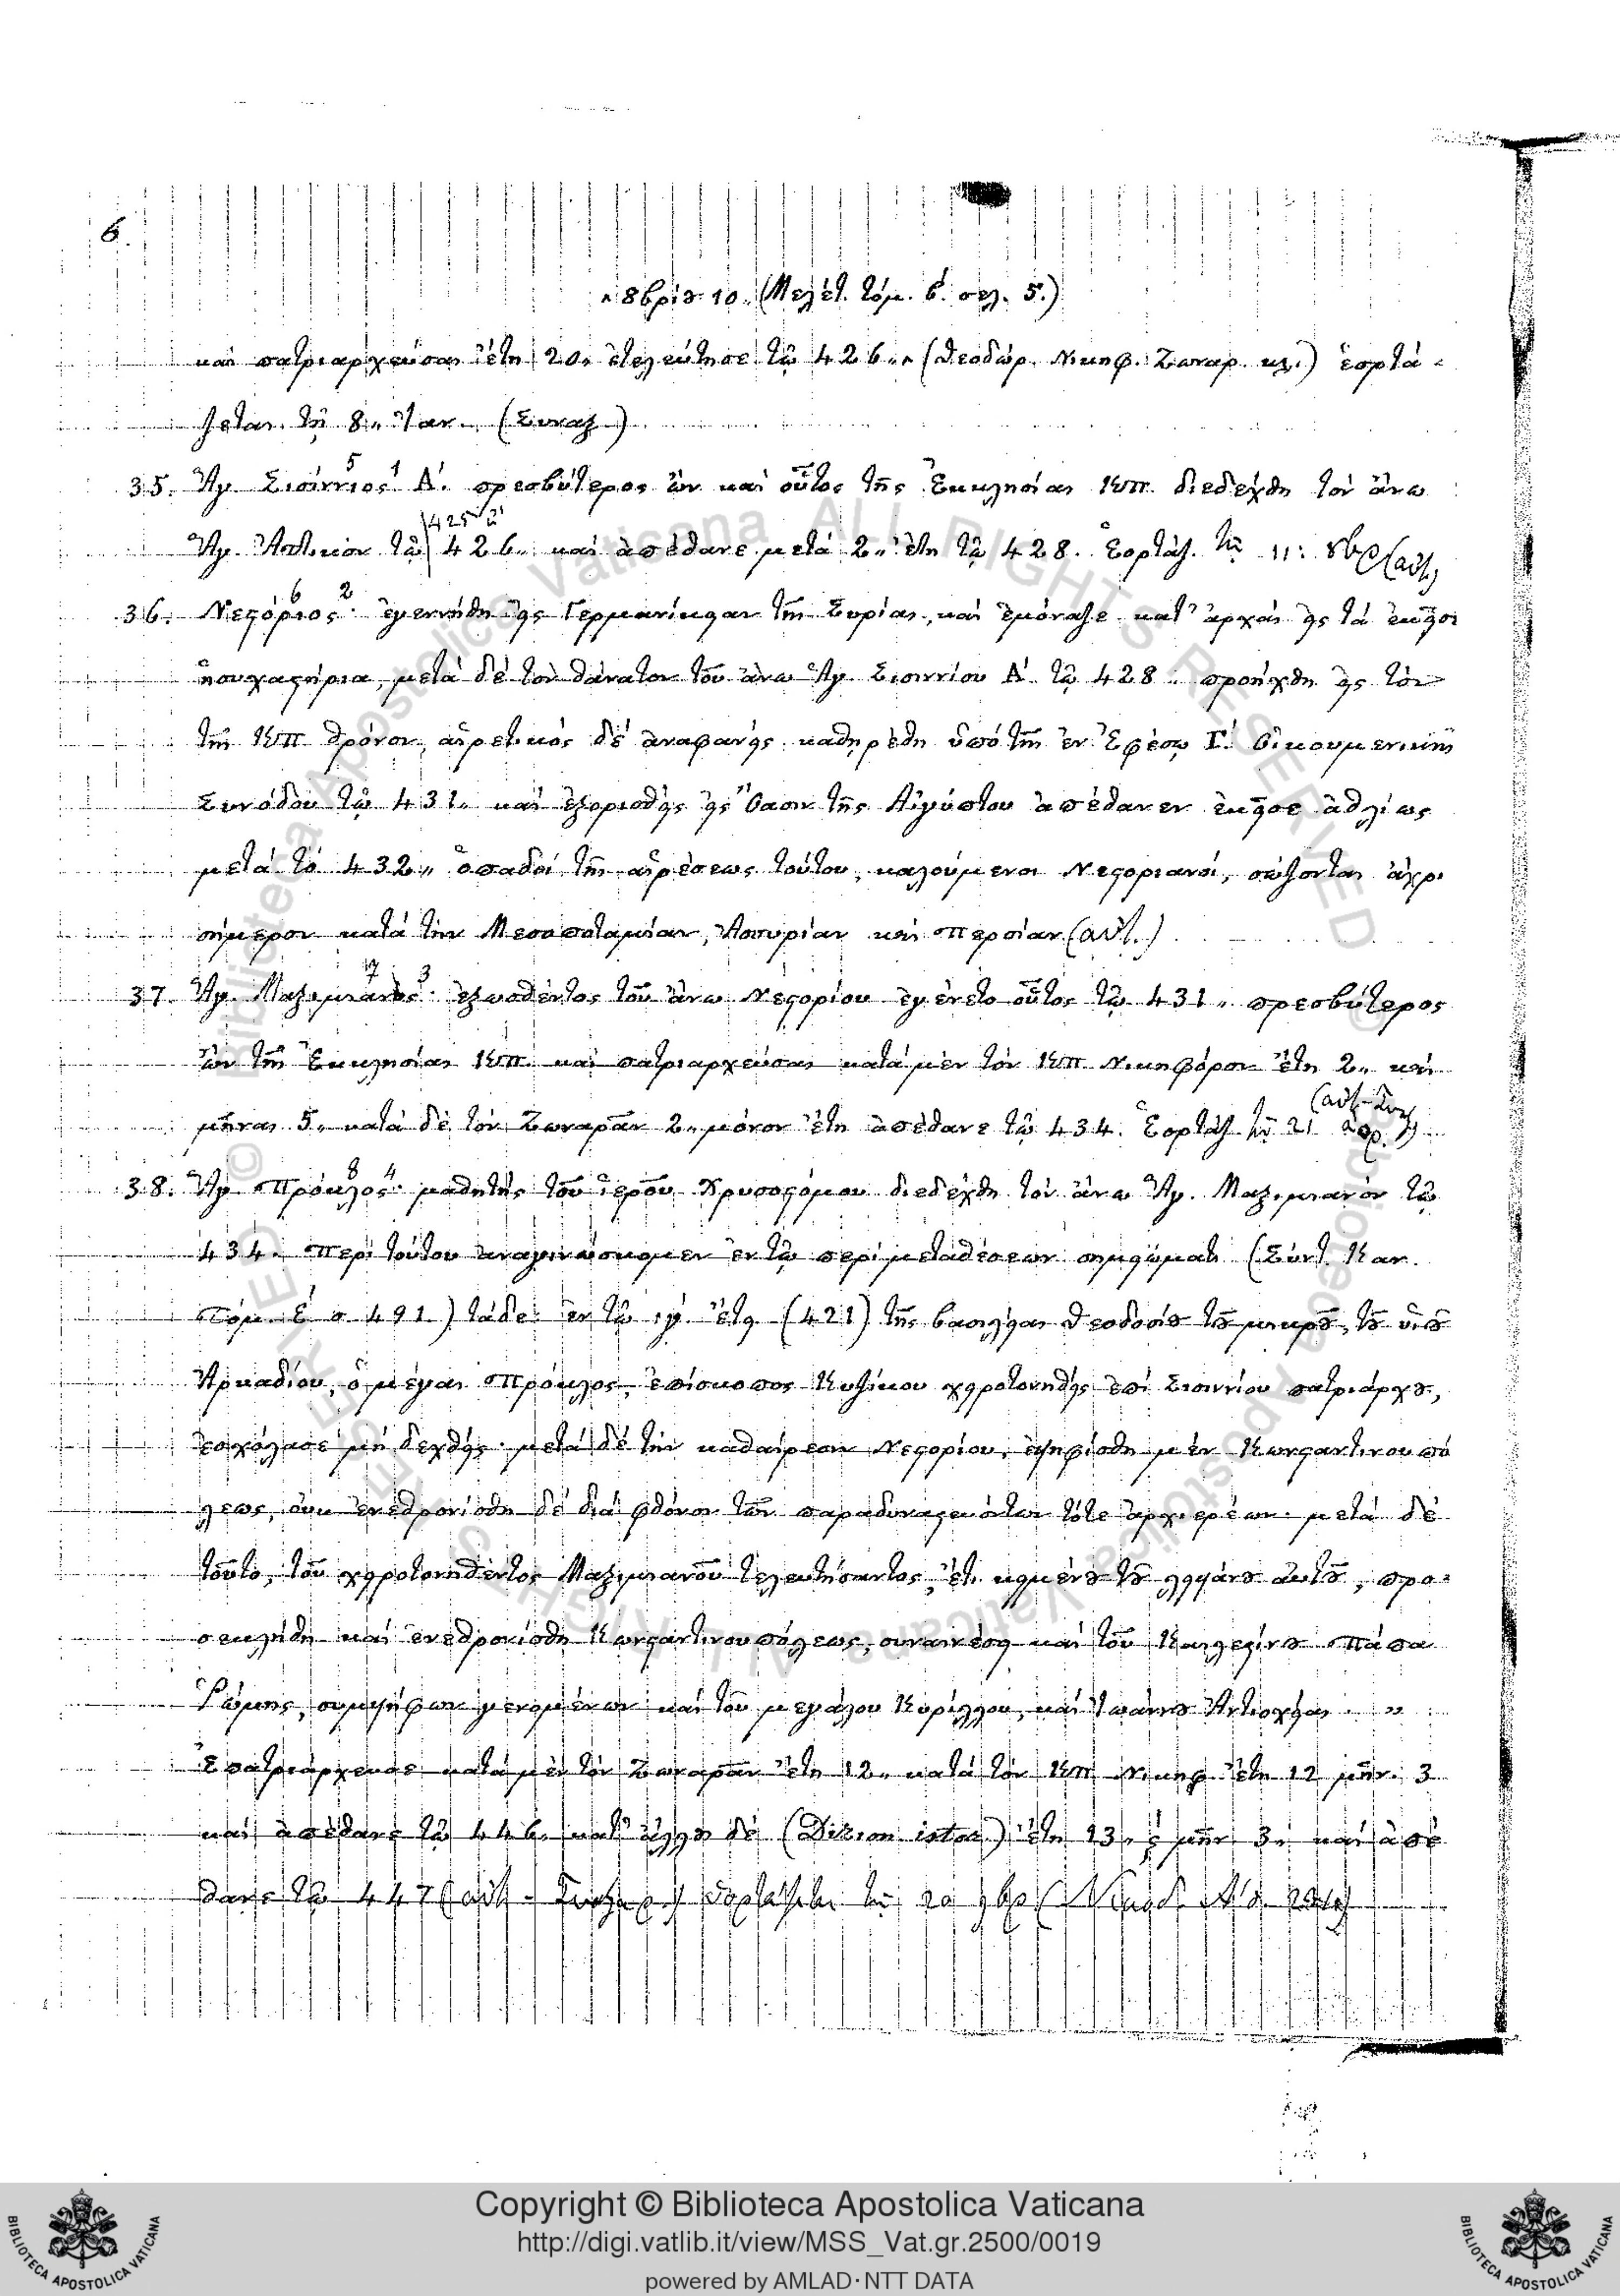 6.
8βρίου 10. (Μελέτ. τόμ. β. σελ. 5.)
καὶ πατριαρχεύσας ἔτη 20. ἐτελεύτησε τῷ 426. (Θεοδώρ. Νικηφ. Ζωναρ. κλ.) ἑορτά-
ζεται τῇ 8. Ἰαν. (Συναξ.)
35. Ἅγ. Σισίννιος Α΄. πρεσβύτερος ὢν καὶ οὗτος τῆς Ἐκκλησίας Κπ. διεδέχθη τὸν ἄνω
5 1
425
Ἅγ. Ἀττικὸν τῷ 426. καὶ ἀπέθανε μετὰ 2. ἔτη τῷ 428. Ἑορτάζ. τῇ 11: 8βρ (αὐτ.)
36. Νεστόριος· ἐγεννήθη εἰς Γερμανίκειαν τῆς Συρίας, καὶ ἐμόναζε κατ' ἀρχὰς εἰς τὰ ἐκεῖσε
6 2
ἡσυχαστήρια, μετὰ δὲ τὸν θάνατον τοῦ ἄνω Ἁγ. Σισιννίου Α΄. τῷ 428. προήχθη εἰς τὸν
τῆς Κπ θρόνον, αἱρετικὸς δὲ ἀναφανεὶς καθῃρέθη ὑπὸ τῆς ἐν Ἐφέσῳ Γ΄. Οἰκουμενικῆς
Συνόδου τῷ 431. καὶ ἐξορισθεὶς εἰς Ὄασιν τῆς Αἰγύπτου ἀπέθανεν ἐκεῖσε ἀθλίως
μετὰ τὸ 432. ὀπαδοὶ τῆς αἱρέσεως τούτου, καλούμενοι Νεστοριανοί, σώζονται ἄχρι
σήμερον κατὰ τὴν Μεσοποταμίαν, Ἀσσυρίαν καὶ Περσίαν (αὐτ.)
37. Ἅγ. Μαξιμιανός· ἐξωσθέντος τοῦ ἄνω Νεστορίου ἐγένετο οὗτος τῷ 431. πρεσβύτερος
7 3
ὢν τῆς Ἐκκλησίας Κπ. καὶ πατριαρχεύσας κατὰ μὲν τὸν Κπ. Νικηφόρον ἔτη 2. καὶ
μῆνας 5. κατὰ δὲ τὸν Ζωναρᾶν 2. μόνον ἔτη ἀπέθανε τῷ 434. Ἑορτάζ τῇ 21 ἀπρ.
38. Ἅγ. Πρόκλος· μαθητὴς τοῦ ἱεροῦ Χρυσοστόμου διεδέχθη τὸν ἄνω Ἅγ. Μαξιμιανὸν τῷ
8 4
434. Περὶ τούτου ἀναγινώσκομεν ἐν τῷ περὶ μεταθέσεων σημειώματι (Σύντ. Καν.
Τόμ. Ε σ. 491.) τάδε· ἐν τῷ ιγ΄. ἔτει (421) τῆς βασιλείας Θεοδοσίου τοῦ μικροῦ, τοῦ υἱοῦ
Ἀρκαδίου, ὁ μέγας Πρόκλος, ἐπίσκοπος Κυζίκου χειροτονηθεὶς ἐπὶ Σισιννίου πατριάρχου,
ἐσχόλασε μὴ δεχθείς· μετὰ δὲ τὴν καθαίρεσιν Νεστορίου, ἐψηφίσθη μὲν Κωνσταντινουπό
λεως, οὐκ ἐνεθρονίσθη δὲ διὰ φθόνον τῶν παραδυναστευόντων τότε ἀρχιερέων· μετὰ δὲ
τοῦτο, τοῦ χειροτονηθέντος Μαξιμιανοῦ τελευτήσαντος, ἔτι κειμένου τοῦ λειψάνου αὐτοῦ, προ-
σεκλήθη καὶ ἐνεθρονίσθη Κωνσταντινουπόλεως, συναινέσει καὶ τοῦ Καιλεστίνου Πάπα
Ῥώμης, συμψήφων γενομένων καὶ τοῦ μεγάλου Κυρίλλου, καὶ Ἰωάννου Ἀντιοχείας. "
Ἐπατριάρχευσε κατὰ μὲν τὸν Ζωναρᾶν ἔτη 12. κατὰ τὸν Κπ Νικηφ. ἔτη 12 μῆν. 3
καὶ ἀπέθανε τῷ 446. κατ' ἄλλους δὲ (Dizion. istor.) ἔτη 13. καὶ μῆν. 3. καὶ ἀπέ
θανε τῷ 447 ἑορτάζεται τῇ 20 9βρ
Copyright © Biblioteca Apostolica Vaticana
http://digi.vatlib.it/view/MSS_Vat.gr.2500/0019
powered by AMLAD·NTT DATA
BIBLIOTECA APOSTOLICA VATICANA
BIBLIOTECA APOSTOLICA VATICANA